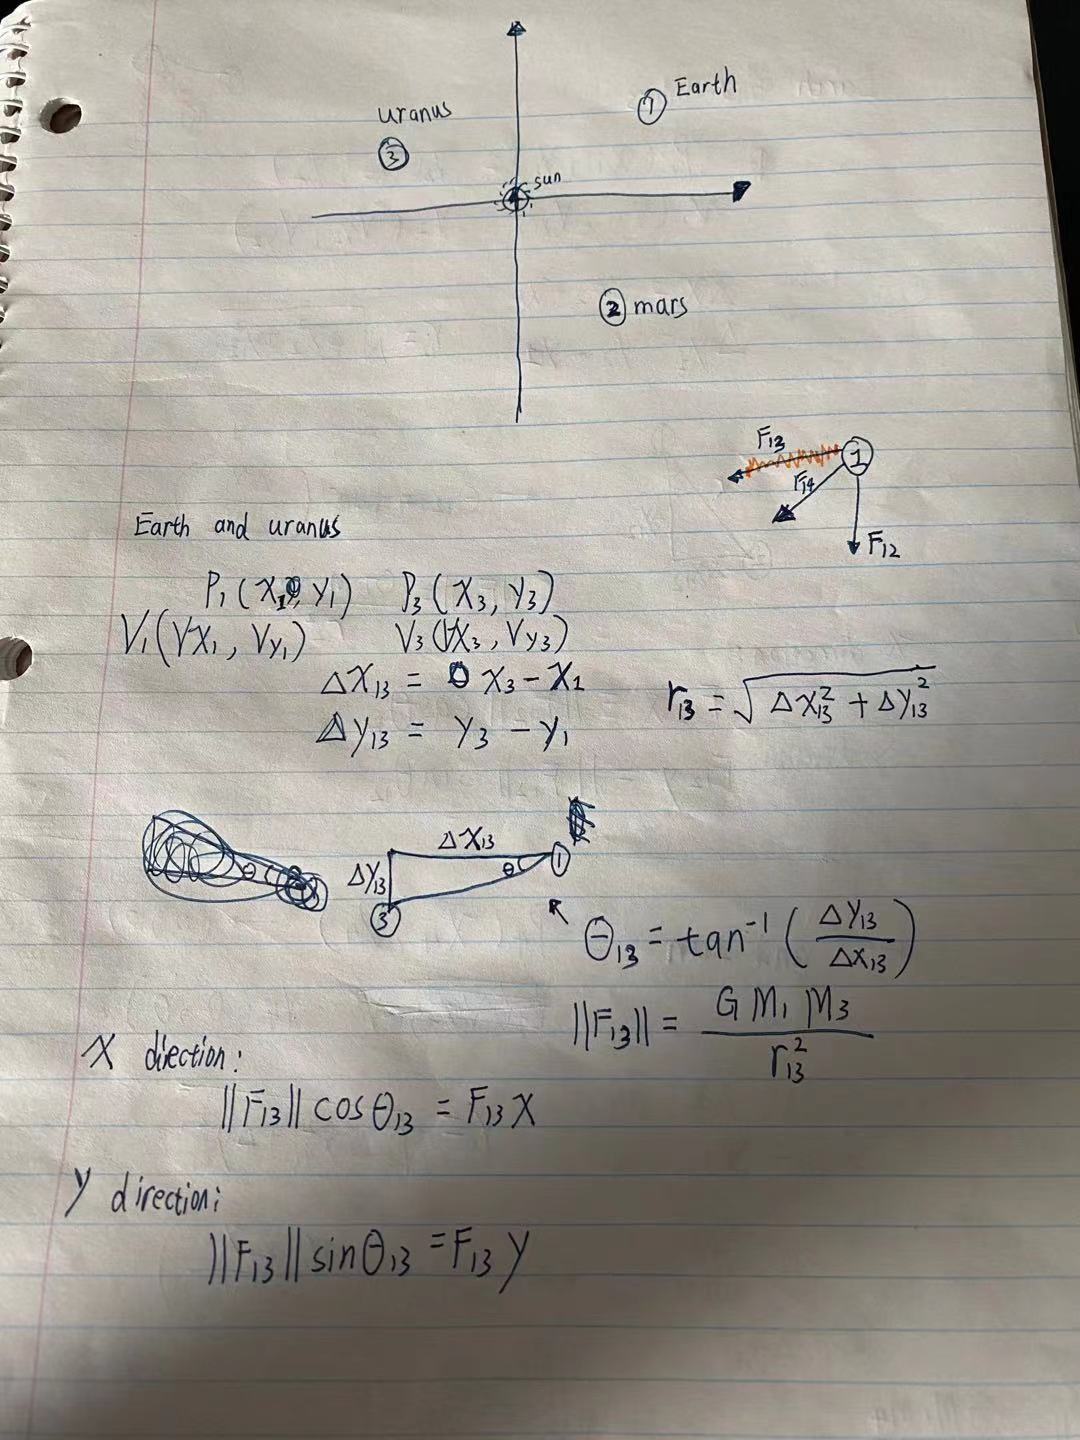 Earth
1
uranus
3
sun
2 mars
F₁₃
1
F₁₄
F₁₂
Earth and uranus
P₁ (X₁, Y₁) P₃ (X₃, Y₃)
V₁ (VX₁, Vy₁) V₃ (VX₃, Vy₃)
ΔX₁₃ = X₃ - X₁
r₁₃ = √(ΔX₁₃² + ΔY₁₃²)
Δy₁₃ = Y₃ - Y₁
ΔX₁₃
θ 1
ΔY₁₃
3
θ
θ₁₃ = tan⁻¹ (ΔY₁₃ / ΔX₁₃)
||F₁₃|| = G M₁ M₃ / r₁₃²
X direction:
||F₁₃|| cos θ₁₃ = F₁₃ X
Y direction:
||F₁₃|| sin θ₁₃ = F₁₃ y